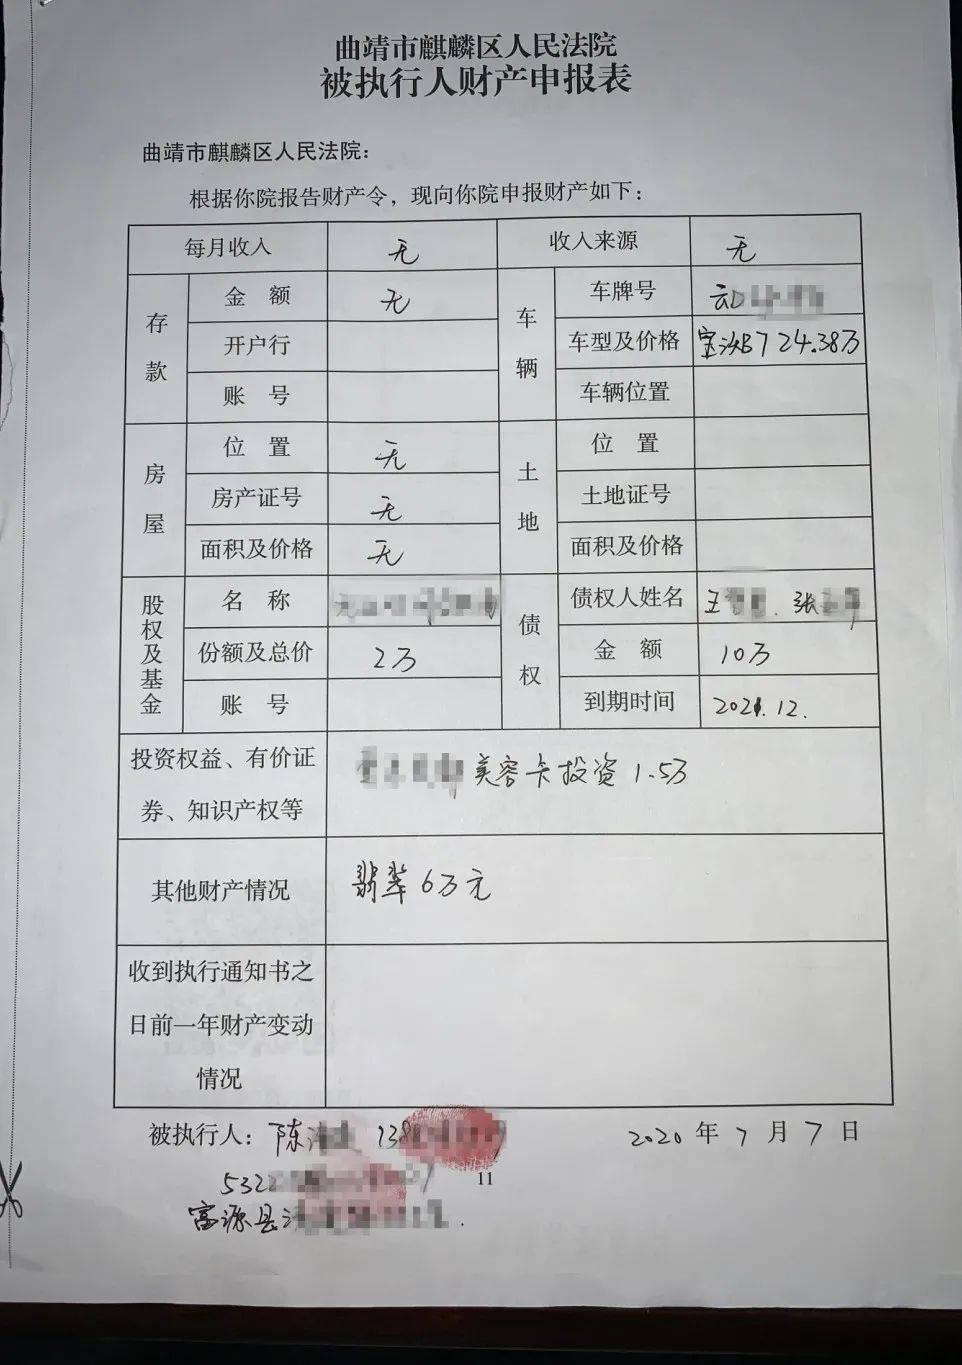 曲靖市麒麟区人民法院
被执行人财产申报表
曲靖市麒麟区人民法院：
根据你院报告财产令，现向你院申报财产如下：
每月收入 无 收入来源 无
存款 金额 无 车辆 车牌号 云D
开户行 车型及价格 宝沃B7 24.38万
账号 车辆位置
房屋 位置 无 土地 位置
房产证号 无 土地证号
面积及价格 无 面积及价格
股权及基金 名称 债权 债权人姓名 王 、张
份额及总价 2万 金额 10万
账号 到期时间 2021.12.
投资权益、有价证
券、知识产权等 美容卡投资1.5万
其他财产情况 翡翠6万元
收到执行通知书之
日前一年财产变动
情况
被执行人：陈 138 2020年7月7日
532
11
富源县